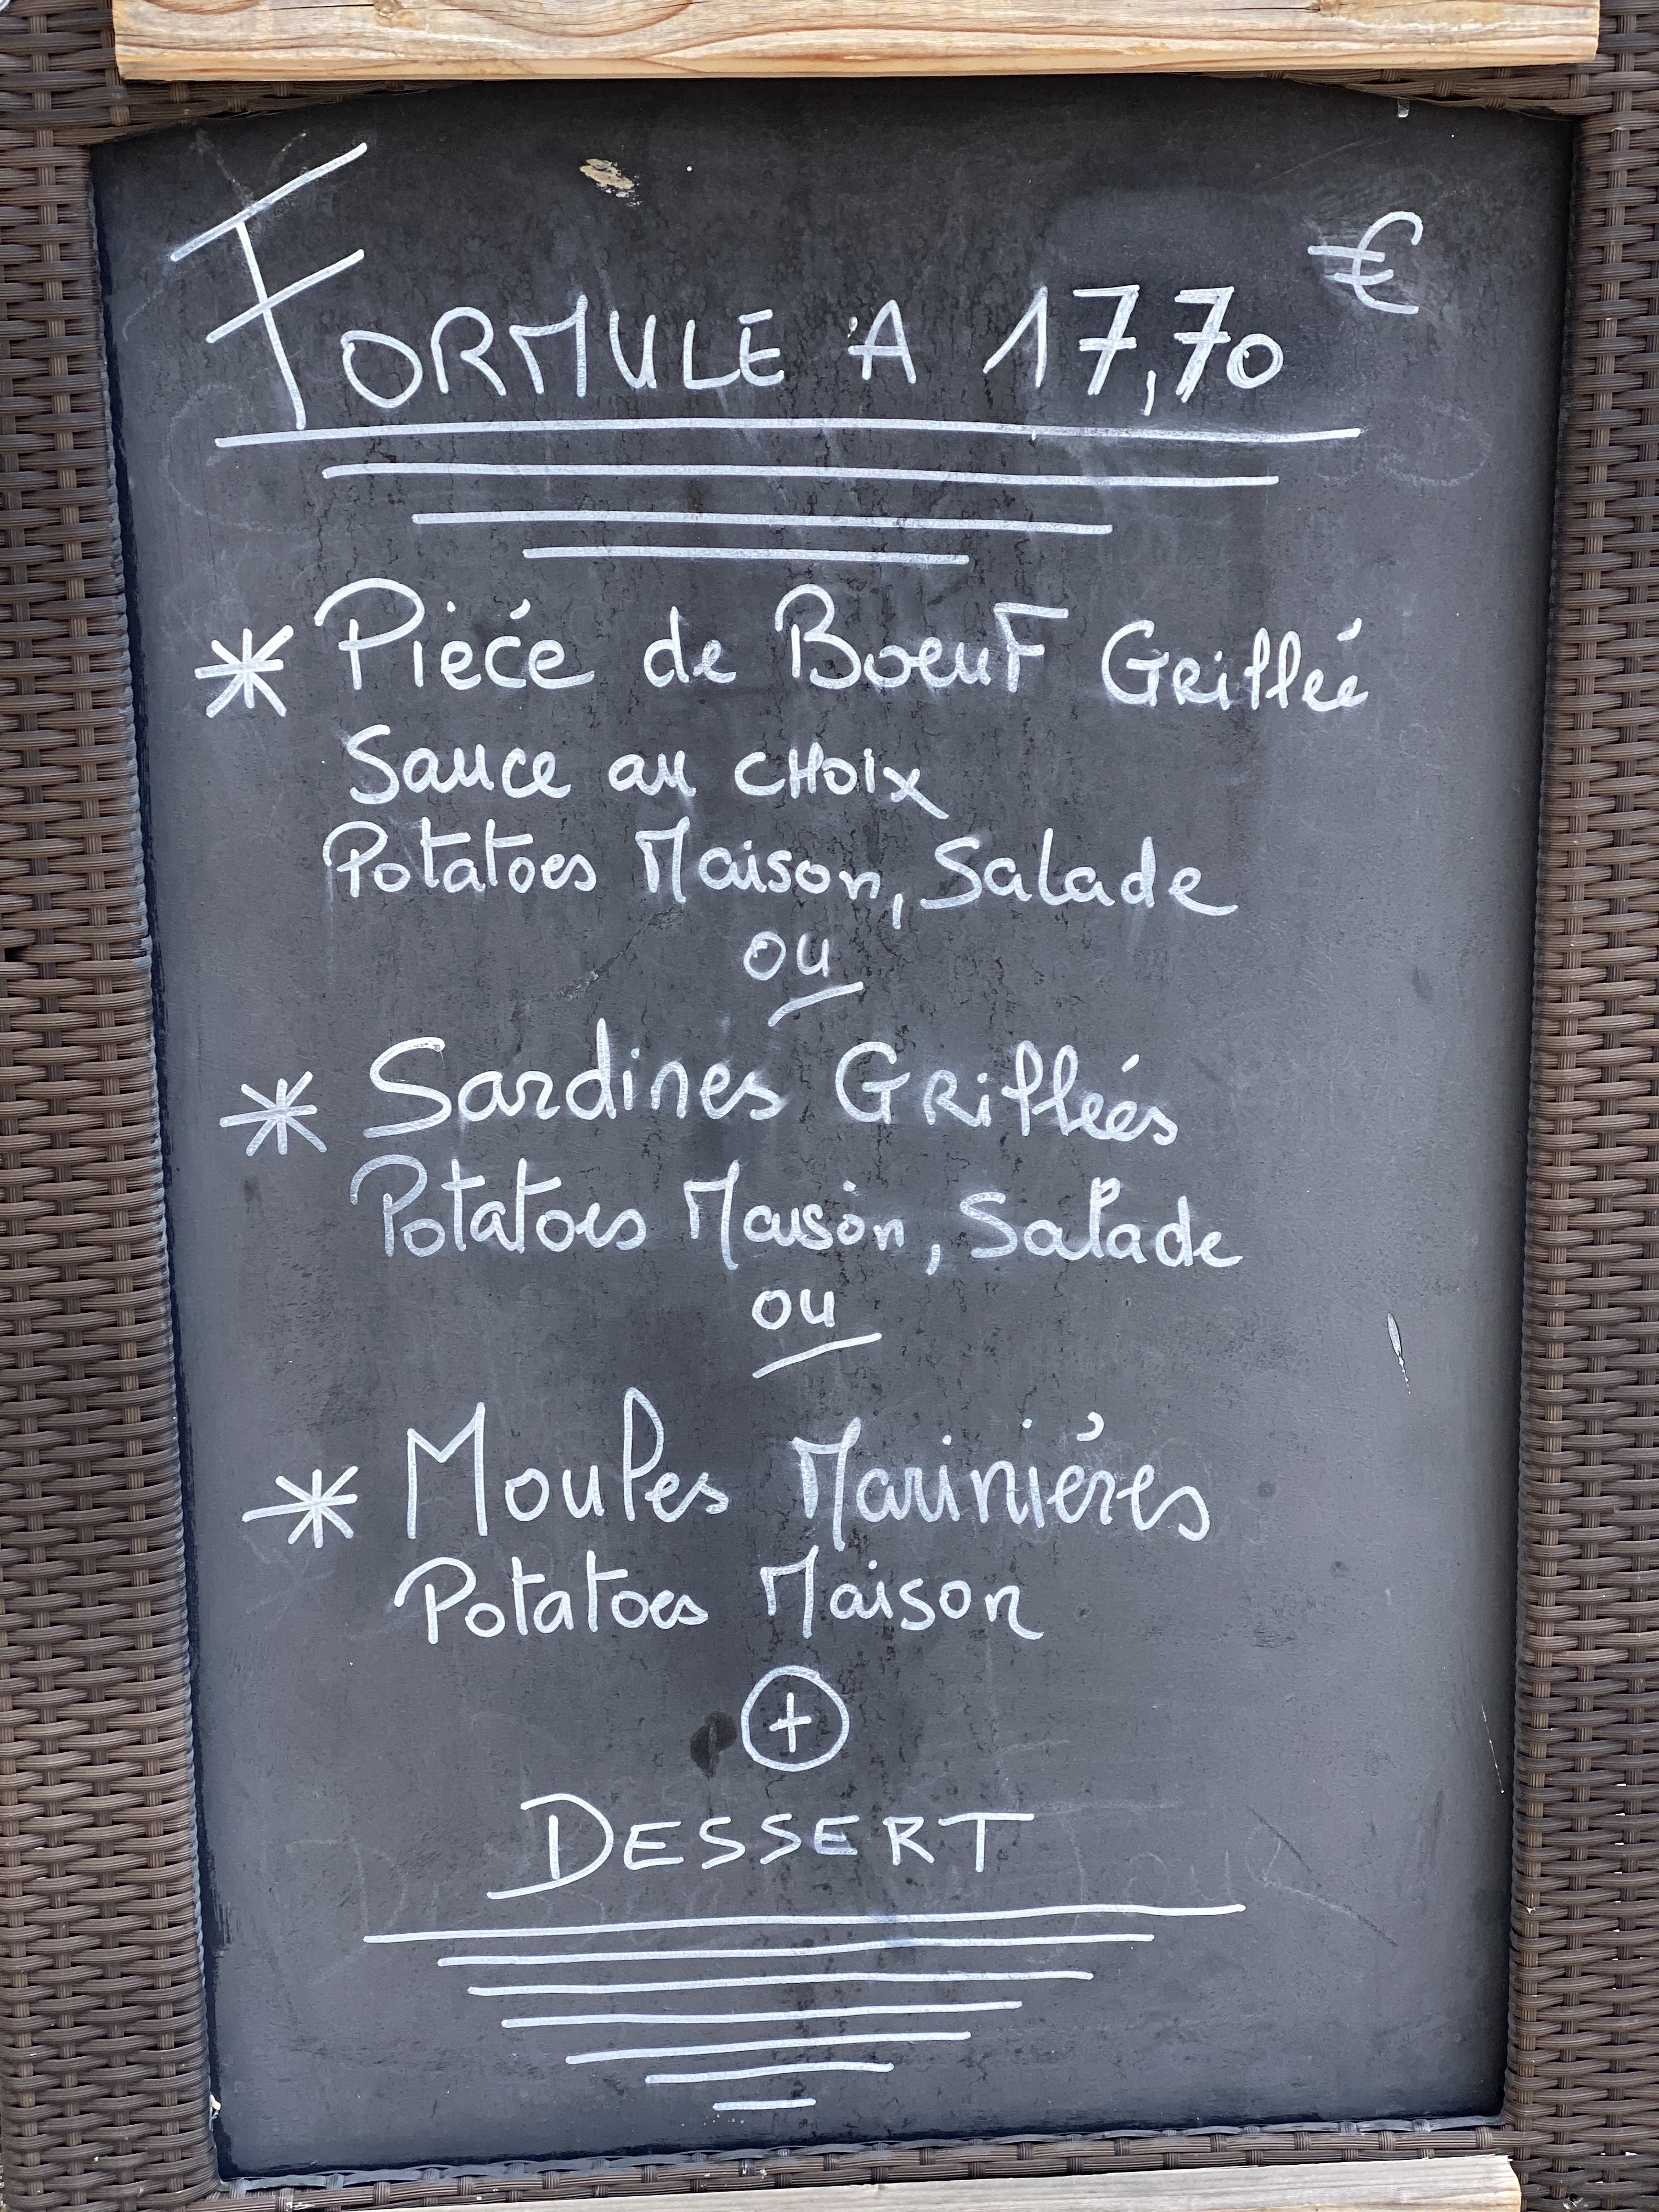 FORMULE A 17,70 €
* Piéce de Boeuf Grillée
Sauce au choix
Potatoes Maison, Salade
ou
* Sardines Grillées
Potatoes Maison, Salade
ou
* Moules Mariniéres
Potatoes Maison
+
DESSERT